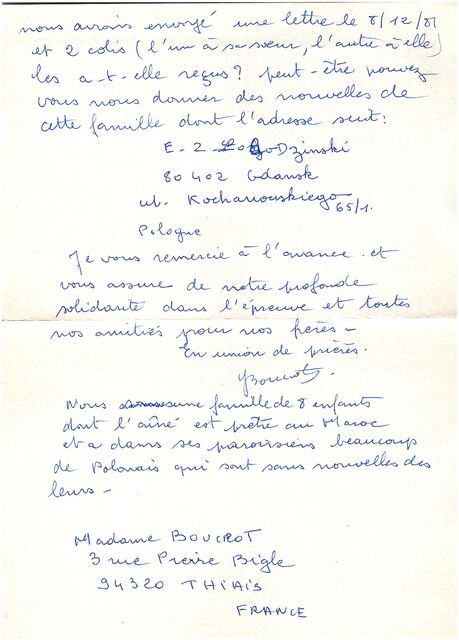 nous avons envoyé une lettre le 8/12/81
et 2 colis (l'un à sa sœur, l'autre à elle)
les a-t-elle reçus? peut-être pouvez
vous nous donner des nouvelles de
cette famille dont l'adresse suit:
E-Z-
80402 Gdansk
ul. Kochanowskiego 65/1.
Pologne
Je vous remercie à l'avance et
vous assure de notre profonde
solidarité dans l'épreuve et toutes
nos amitiés pour nos frères -
En union de prières.
Nous une famille de 8 enfants
dont l'aîné est prêtre au Maroc
et a dans ses paroissiens beaucoup
de Polonais qui sont sans nouvelles des
leurs -
Madame BOUCROT
3 rue Pierre Bigle
94320 THIAIS
FRANCE